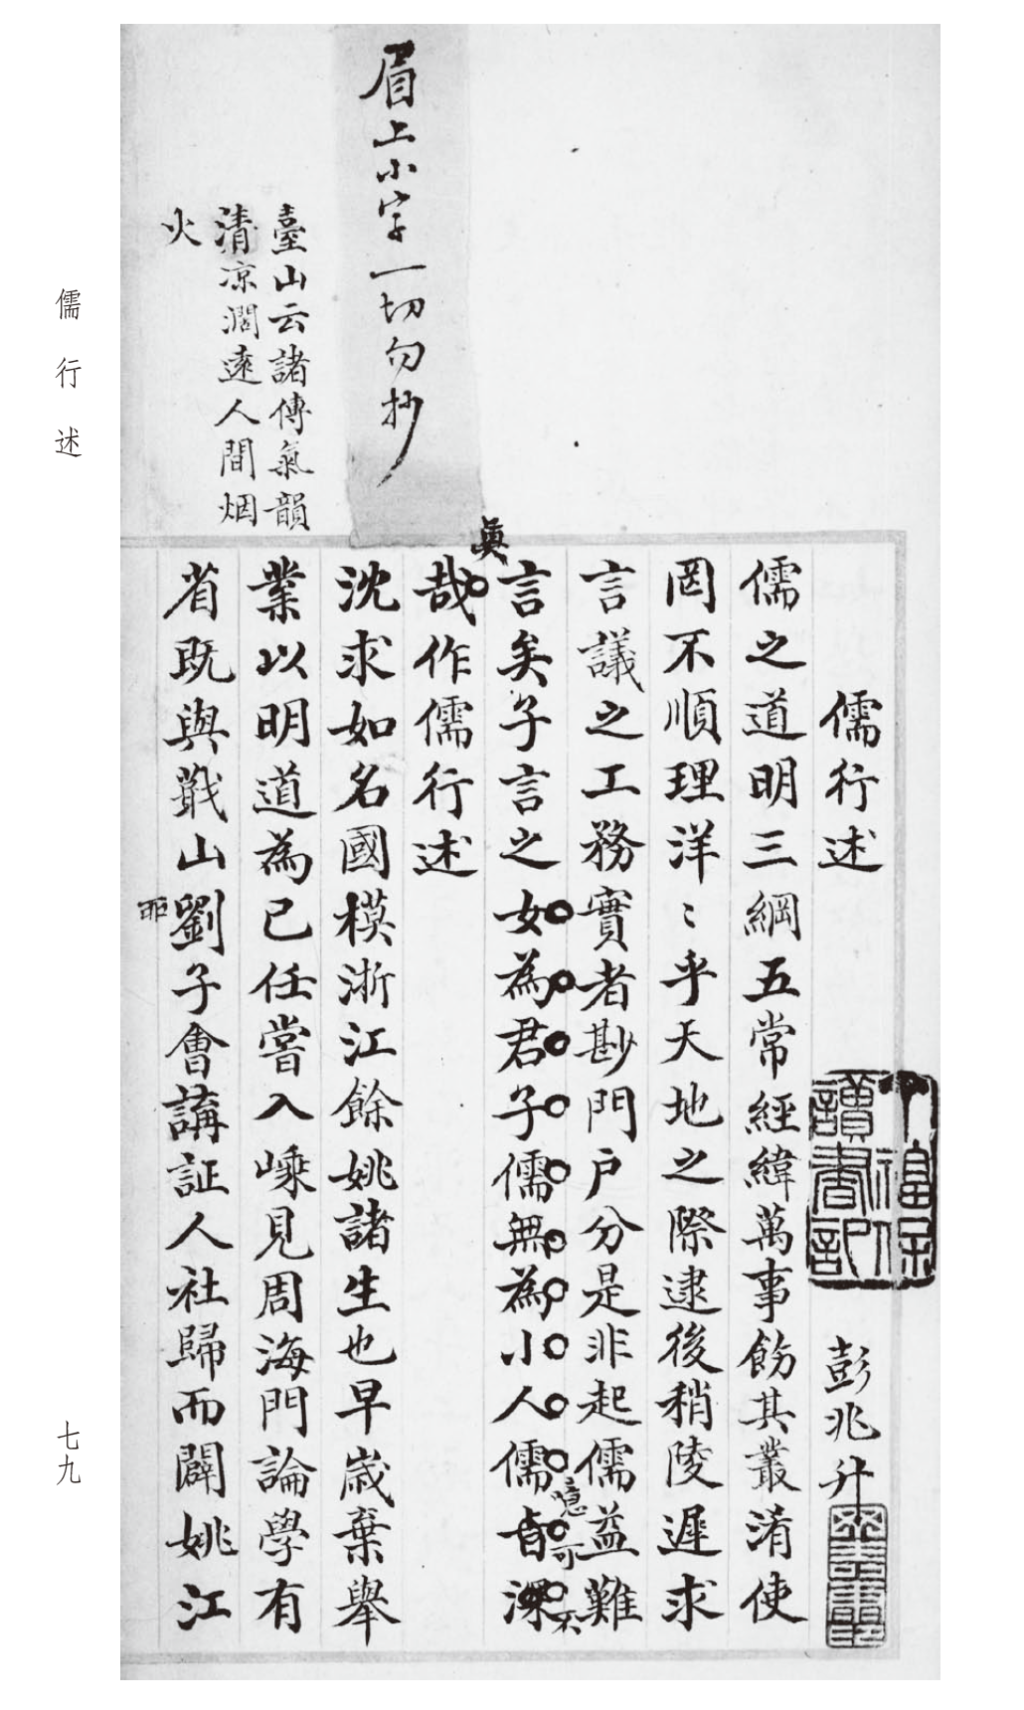 儒行述
彭兆升
丁福保
讀書記
儒之道明三綱五常經緯萬事飭其叢淆使
罔不順理洋〻乎天地之際逮後稍陵遲求
言議之工務實者尠門户分是非起儒益難
言矣子言之女為君子儒無為小人儒旨深
噫可不
眞
哉作儒行述
眉上小字一切勿抄
沈求如名國模浙江餘姚諸生也早歲棄舉
臺山云諸傳氣韻
清凉濶遠人間烟
火
業以明道為己任嘗入嵊見周海門論學有
省既與蕺山劉子會講証人社歸而闢姚江
儒行述
七九